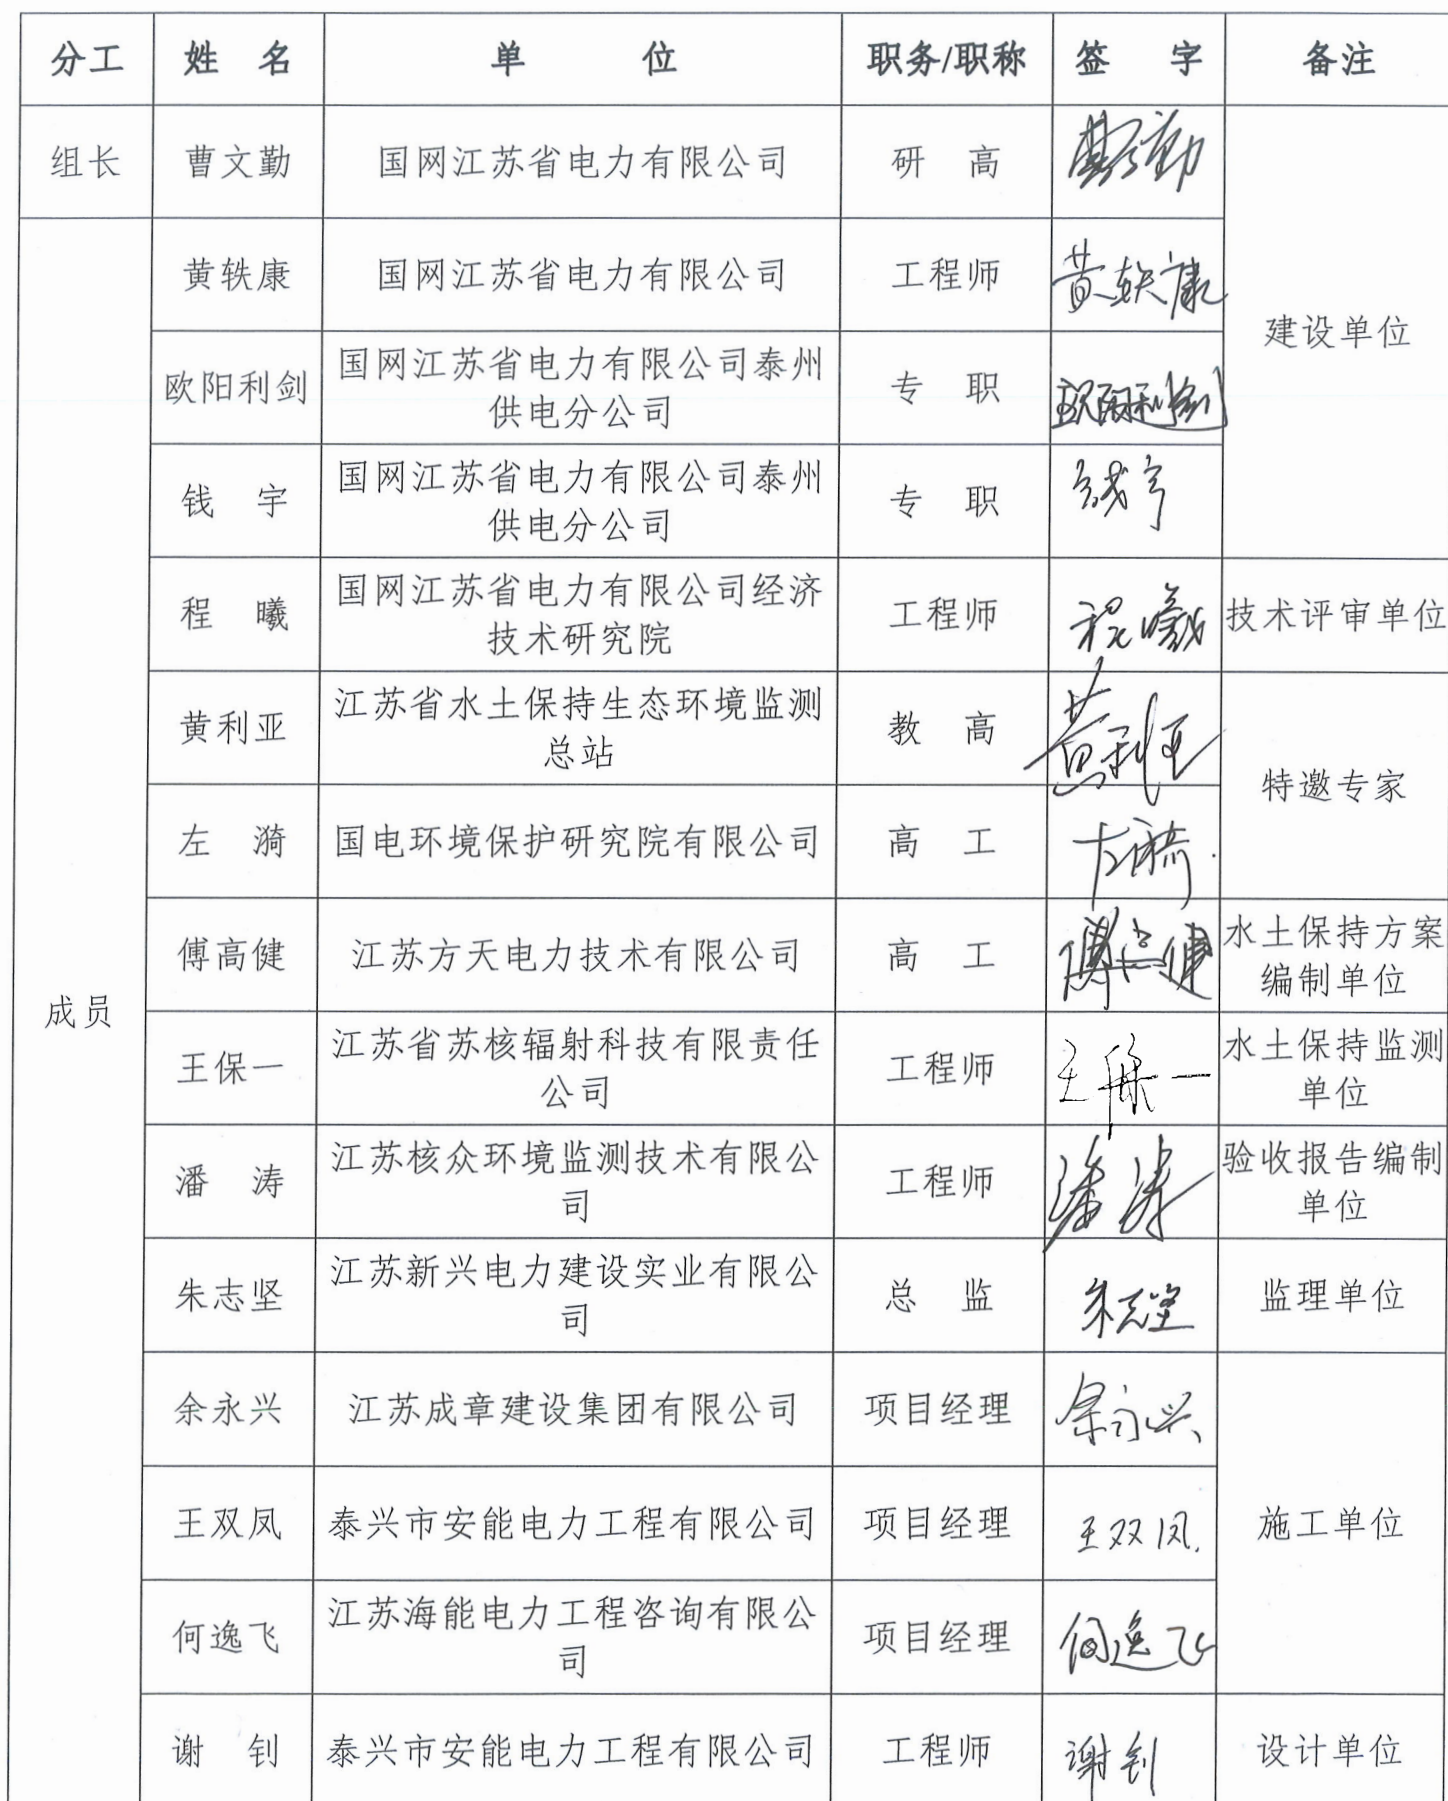 分工 姓 名 单 位 职务/职称 签 字 备注
组长 曹文勤 国网江苏省电力有限公司 研 高 曹文勤
黄轶康 国网江苏省电力有限公司 工程师 黄轶康
建设单位
欧阳利剑 国网江苏省电力有限公司泰州
供电分公司 专 职 欧阳利剑
钱 宇 国网江苏省电力有限公司泰州
供电分公司 专 职 钱宇
程 曦 国网江苏省电力有限公司经济
技术研究院 工程师 程曦 技术评审单位
黄利亚 江苏省水土保持生态环境监测
总站 教 高 黄利亚
特邀专家
左 漪 国电环境保护研究院有限公司 高 工 左漪
傅高健 江苏方天电力技术有限公司 高 工 傅高健 水土保持方案
编制单位
成员
王保一 江苏省苏核辐射科技有限责任
公司 工程师 王保一 水土保持监测
单位
潘 涛 江苏核众环境监测技术有限公
司 工程师 潘涛 验收报告编制
单位
朱志坚 江苏新兴电力建设实业有限公
司 总 监 朱志坚 监理单位
余永兴 江苏成章建设集团有限公司 项目经理 余永兴
王双凤 泰兴市安能电力工程有限公司 项目经理 王双凤 施工单位
何逸飞 江苏海能电力工程咨询有限公
司 项目经理 何逸飞
谢 钊 泰兴市安能电力工程有限公司 工程师 谢钊 设计单位